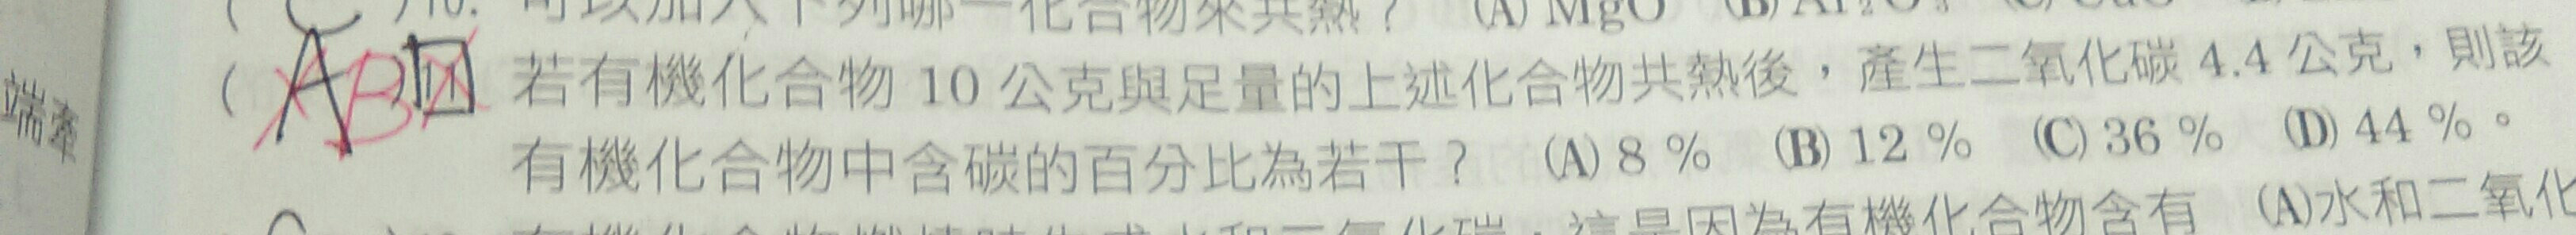 )10. 可以加入下列哪一化合物來共熱？ (A) MgO (B) Al₂O₃ (C) CuO
端牽
( A B )11. 若有機化合物 10 公克與足量的上述化合物共熱後，產生二氧化碳 4.4 公克，則該
有機化合物中含碳的百分比為若干？ (A) 8 % (B) 12 % (C) 36 % (D) 44 %。
有機化合物燃燒時生成水和二氧化碳，這是因為有機化合物含有 (A)水和二氧化